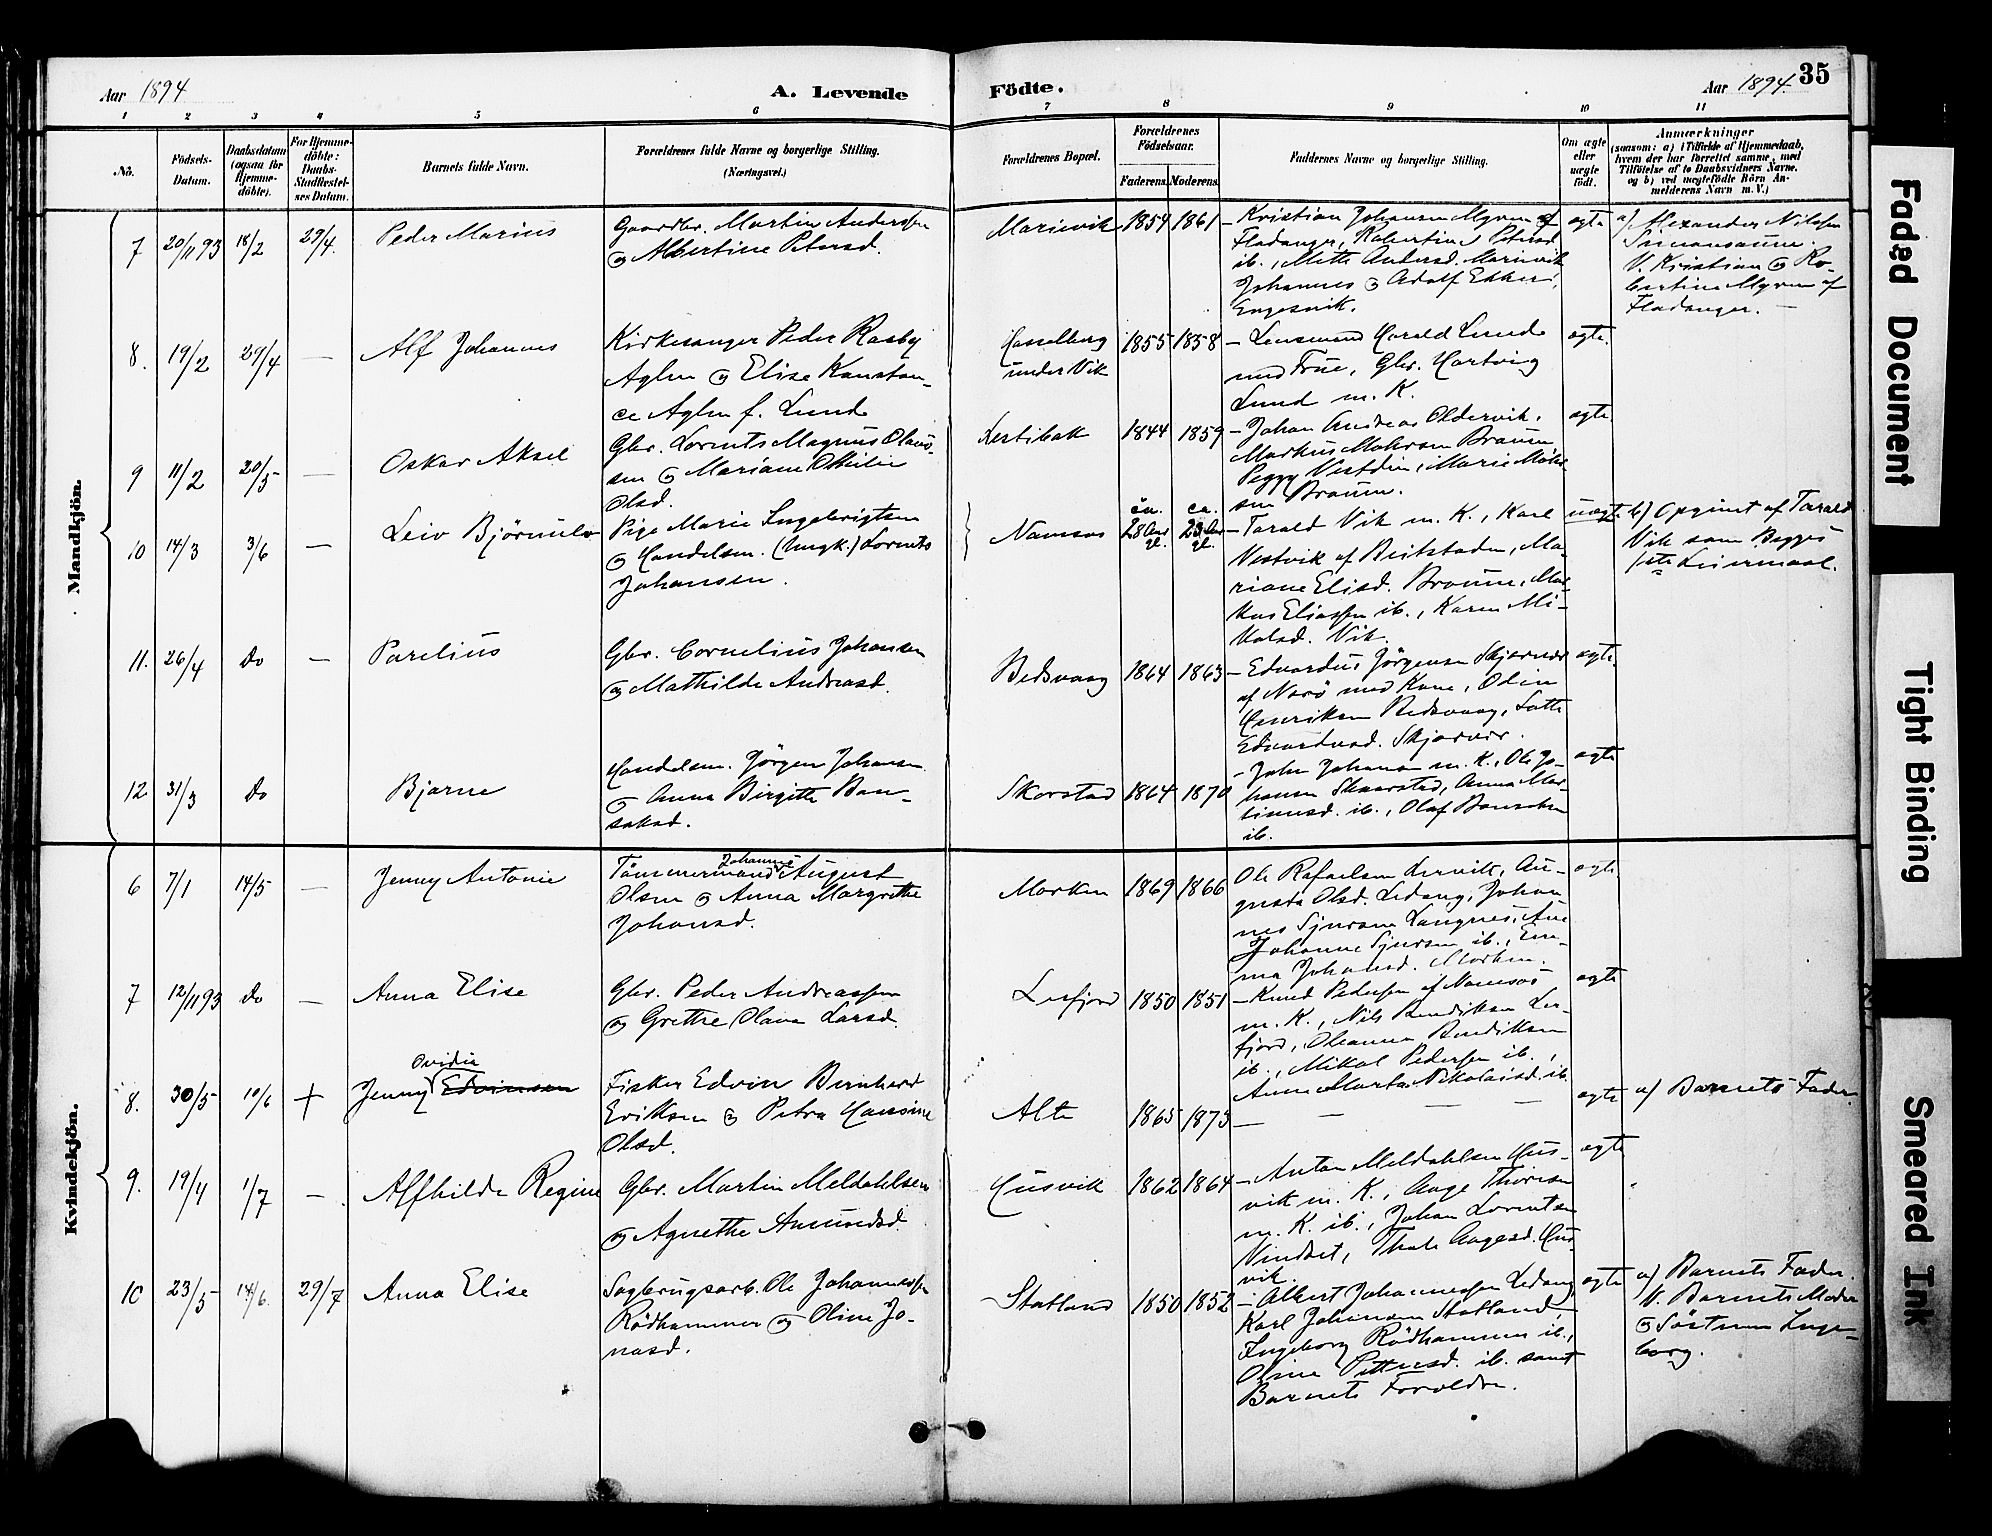 Aar 1894
A. Levende
Födte.
Aar 1894.
35
1 2 3 4 5 6 7 8 9 10 11
No.
Födsels-
Datum.
Daabsdatum
(ogsaa for
Hjemme-
döbte).
For Hjemme-
döbte:
Daabs-
Stadfæstel-
ses Datum.
Barnets fulde Navn.
Forældrenes fulde Navne og borgerlige Stilling.
(Næringsvei.)
Forældrenes Bopæl.
Forældrenes
Födselsaar.
Faderens. Moderens.
Faddernes Navne og borgerlige Stilling.
Om ægte
eller
uægte
födt.
Anmærkninger
(saasom: a) i Tilfælde af Hjemmedaab,
hvem der har forrettet samme, med
Tilföielse af to Daabsvidners Navne,
og b) ved uægtefödte Börn An-
melderens Navn m. V.)
Mandkjön.
7 20/11 93 18/2 29/4. Peder Marius
Gaardbr. Martin Anderssen
og Albertine Petersd.
Marievik 1854 1861
– Kristian Johansen Myren af
Fladanger, Robertine Petersd.
ib., Mette Andersd. Marievik
Johannes og Adolf
Engesvik.
ægte
a) Alexander Nilssen
V. Kristian og Ro-
bertine Myren af
Fladanger. –
8. 19/2 29/4 – Alf Johannes
Kirkesanger Peder Rasby
Aglen og Elise Konstan-
ce Aglen f. Lund
Hasselberg
under Vik
1855 1858
– Lensmand Harald Lund
med Frue, Gbr. Hartvig
Lund m. K.
ægte.
9 11/2 20/5 – Oskar Aksel
Gbr. Lorents Magnus Olaus-
sen og Mariane Otilie
Olsd.
1844 1859
– Johan Andreas Oldervik.
Markus
Peggy
sen Braum.
ægte
10 14/3 3/6 – Leiv Björnulv
Pige Marie Ingebrigtsen
og Handelsm. (Ungk.) Lorents
Johansen.
Namsos
ca. 28 Aar gl.
ca. 23 Aar gl.
– Tarald Vik m. K., Karl
Vestvik af Beitstaden, Ma-
riane Eliasd. Braum, Mar-
kus Eliassen ib., Karen Mi-
kalsd. Vik.
uægte
b) Opgivet af Tarald
Vik som Begges
1ste Leiermaal.
11. 26/4 Do – Parelius
Gbr. Cornelius Johansen
og Mathilde Andreasd.
Bedsvaag 1864 1863
– Edvardus Jörgensen Skjærvær
af Nærö med Kone, Odin
Henriksen Bedsvaag, Lotte
Edvardusd. Skjærvær.
ægte.
12 31/3 Do Bjarne
Handelsm. Jörgen Johansen
og Anna Birgitte Ben-
Skorstad 1864 1870
– John Johansen m. K., Ole Jo-
hansen Skaarstad, Anna Mar-
tinusd. ib., Olaf
ib.
ægte
Kvindekjön.
6 7/1 14/5 – Jenny Antonie
Tömmermand Johannes August
Olsen og Anna Margrethe
Johansd.
Morken 1869 1866
Ole Rafaelsen Lervik, Au-
gusta Olsd. Ledang, Johan-
nes Sjursen Langnes, Ane
Johanne Sjursen ib., Em-
ma Johansd. Morken.
ægte
7 12/11 93 Do – Anna Elise
Gbr. Peder Andreassen
og Grethe Olava Larsd.
Lerfjord 1850 1851
– Knud Pedersen af Namsos
m. K., Nils Bendiksen Ler-
fjord, Oleanna Bendiksen
ib., Mikal Pedersen ib.,
Anne Marta Nikolaisd. ib.
ægte
8. 30/5 10/6 + Jenny Ovidia Edvinsen
Fisker Edvin Bernhard
Eriksen og Petra Hansine
Olsd.
Alte 1865 1873 – – – –
ægte
a) Barnets Fader
9. 19/4 1/7 – Alfhilde Regine
Gbr. Martin Meldahlsen
og Agnethe Amundsd.
Husvik 1862 1864
– Anton Meldahlsen Hus-
vik m. K., Aage Thorsen
m. K. ib., Johan Lorentsen
Vindset, Thale Aagesd. Hus-
vik.
ægte
10 23/5 14/6. 29/7 Anna Elise
Sagbrugsarb. Ole Johannessen
Rödhammer og Oline Jo-
nasd.
Statland 1850 1852
– Albert Johannessen Ledang,
Karl Johansen Statland,
Ingeborg Rödhammer ib.,
Oline Pettersd. ib. samt
Barnets Forældre.
ægte
a) Barnets Fader.
V. Barnets Moder
og Söstrene Inge-
borg.
Faded Document
Tight Binding
Smeared Ink